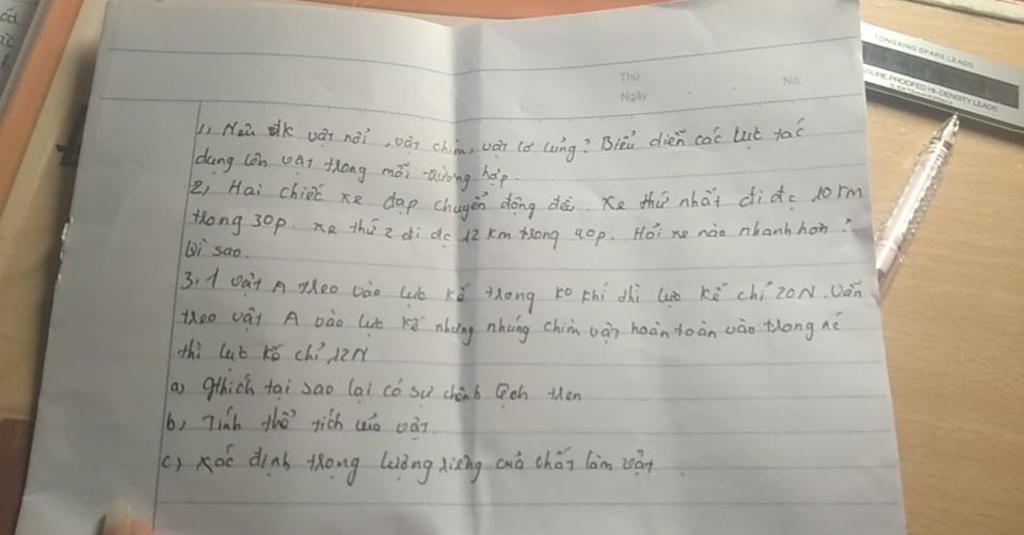 Thứ No.
Ngày
1, Nêu đk vật nổi, vật chìm, vật lơ lửng? Biểu diễn các lực tác
dụng lên vật trong mỗi trường hợp.
2, Hai chiếc xe đạp chuyển động đều. Xe thứ nhất đi đc 10 km
trong 30p. xe thứ 2 đi đc 12 km trong 40p. Hỏi xe nào nhanh hơn?
Vì sao.
3, 1 vật A treo vào lực kế trong ko khí thì lực kế chỉ 20N. Vẫn
treo vật A vào lực kế nhưng nhúng chìm vật hoàn toàn vào trong nc
thì lực kế chỉ 12N
a) gthích tại sao lại có sự chênh lệch trên
b, Tính thể tích của vật.
c) xác định trọng lượng riêng của chất làm vật.
TONGXING SPARE LEADS
PROOFED HI-DENSITY LEADS